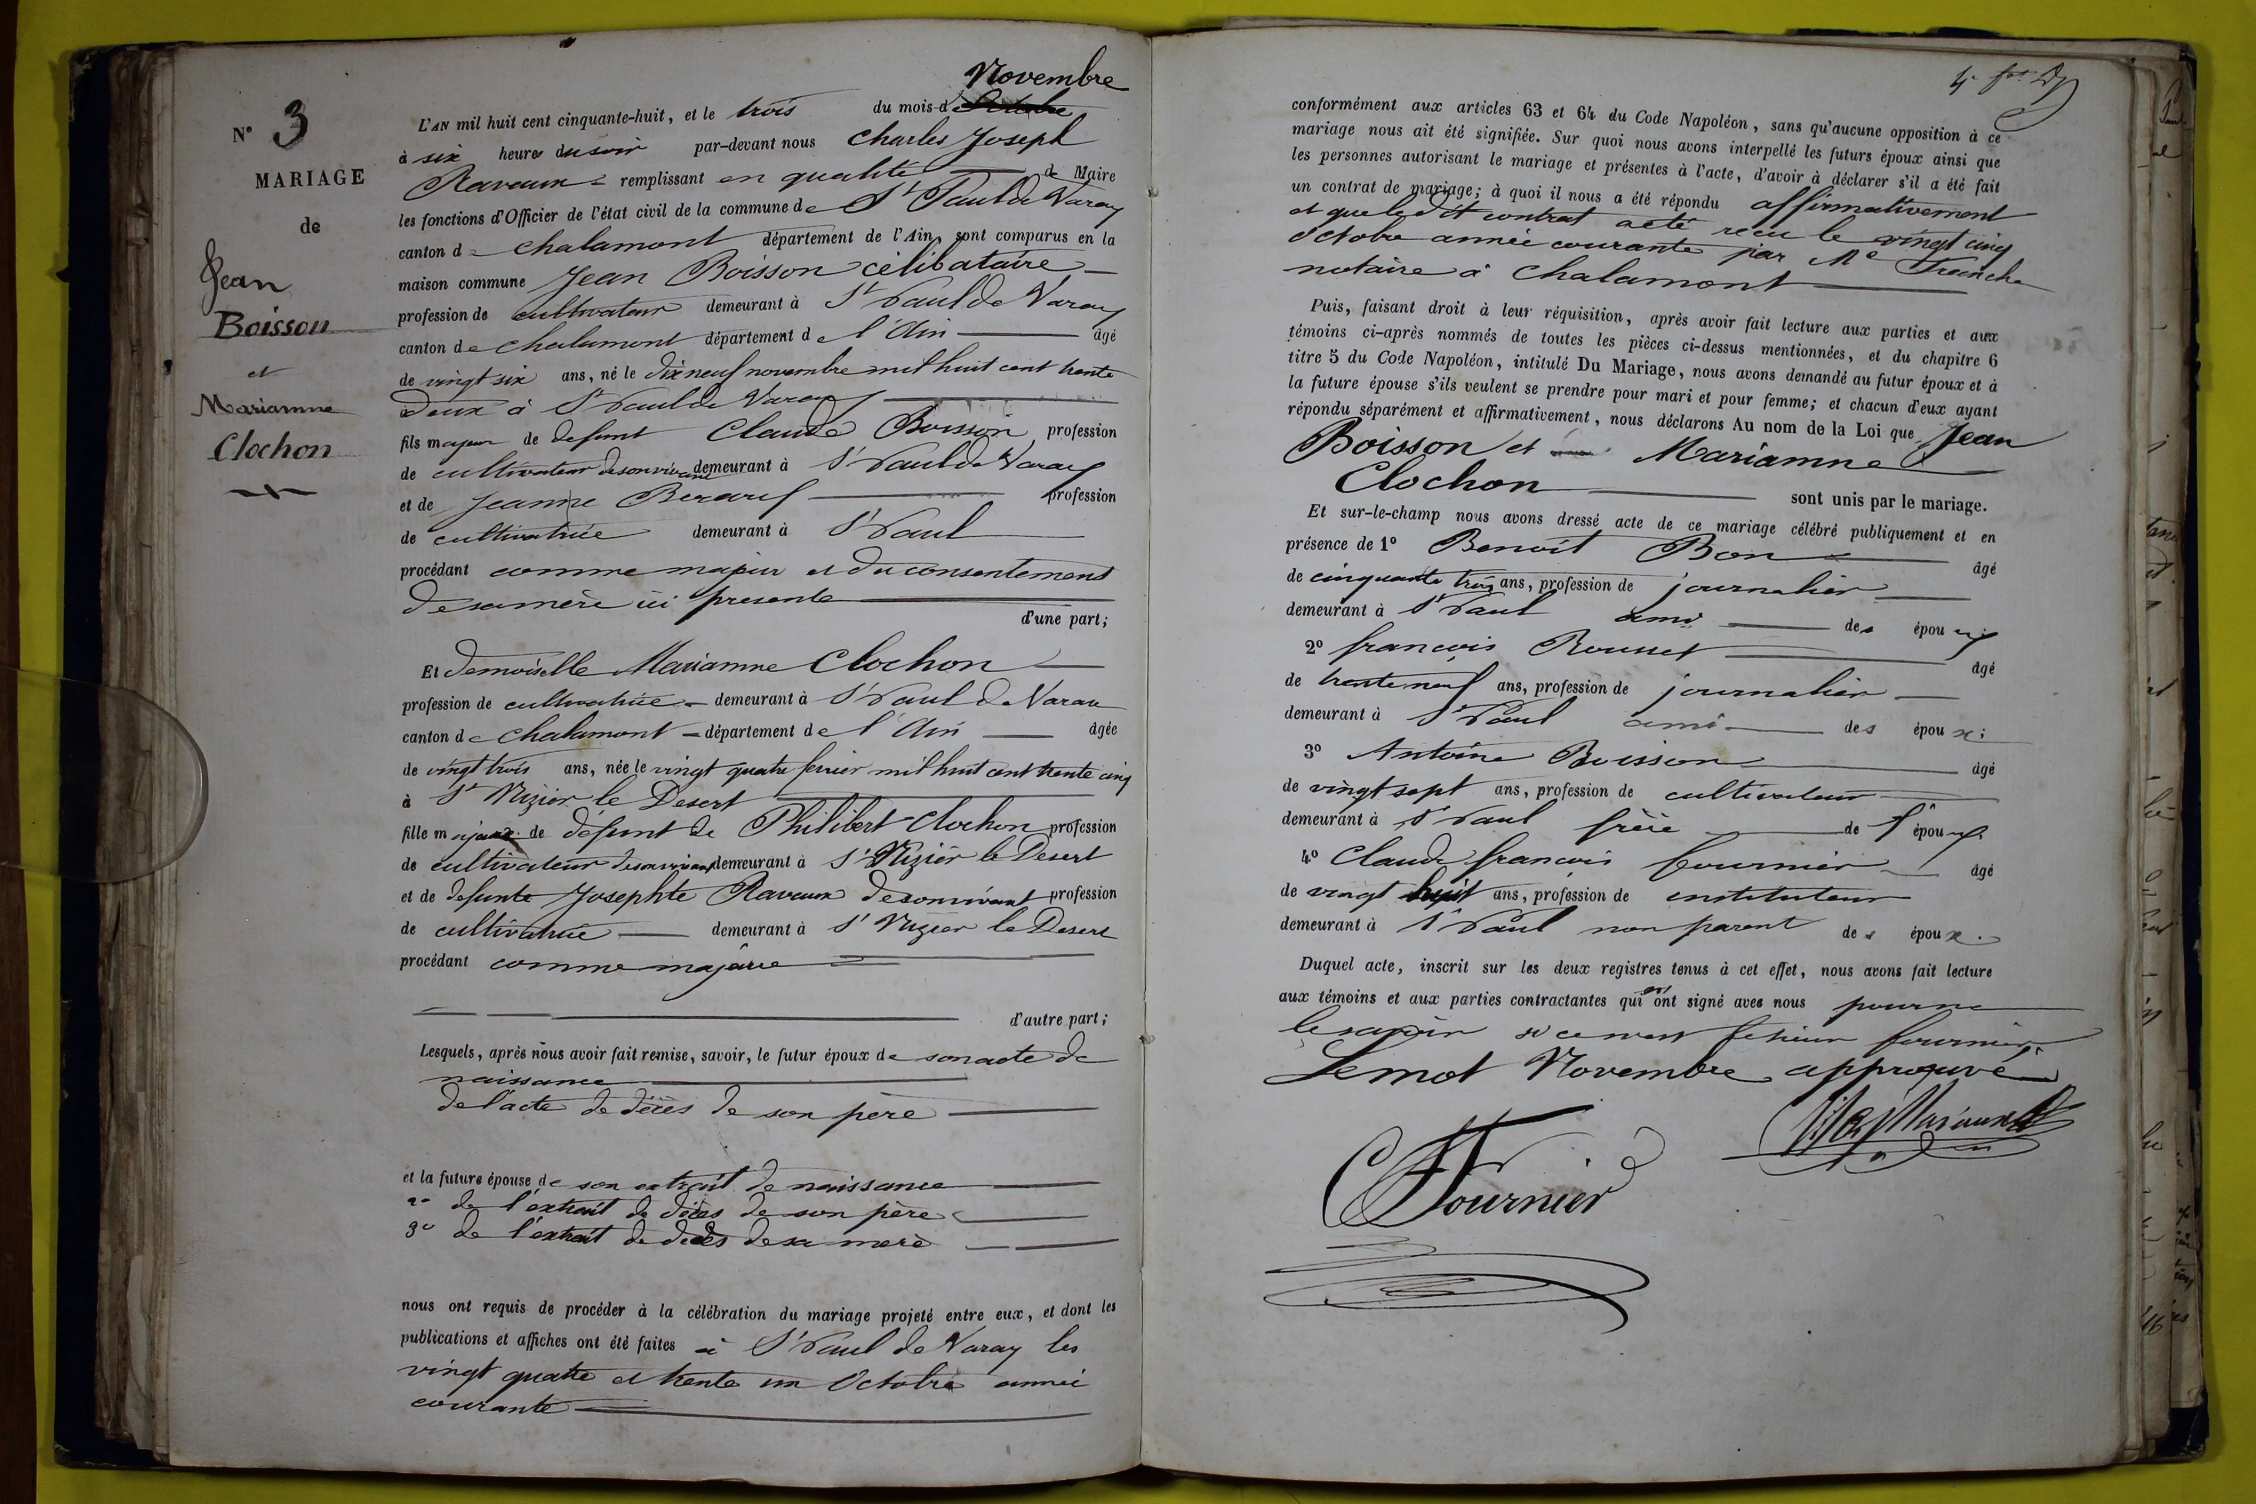 N° 3
MARIAGE
de
Jean
Boisson
et
Mariamne
Clochon
Novembre
L'AN mil huit cent cinquante-huit, et le trois du mois d Octobre
à six heures du soir par-devant nous Charles Joseph
Raveaux remplissant en qualité de Maire
les fonctions d'Officier de l'état civil de la commune de St Paul de Varax
canton de Chalamont département de l'Ain, sont comparus en la
maison commune Jean Boisson célibataire
profession de cultivateur demeurant à St Paul de Varax
canton de Chalamont département de l'Ain âgé
de vingt six ans, né le dix neuf novembre mil huit cent trente
deux à St Paul de Varax
fils majeur de defunt Claude Boisson profession
de cultivateur de son vivant demeurant à St Paul de Varax
et de Jeanne profession
de cultivatrice demeurant à St Paul
procédant comme majeur et du consentement
de sa mère ici presente
d'une part;
Et demoiselle Mariamne Clochon
profession de cultivatrice demeurant à St Paul de Varax
canton de Chalamont département de l'Ain âgée
de vingt trois ans, née le vingt quatre fevrier mil huit cent trente cinq
à St Nizier le Desert
fille majeure de défunt de Philibert Clochon profession
de cultivateur de son vivant demeurant à St Nizier le Desert
et de defunte Josephte Raveaux de son vivant profession
de cultivatrice demeurant à St Nizier le Desert
procédant comme majeure
d'autre part;
Lesquels, après nous avoir fait remise, savoir, le futur époux de son acte de
naissance
de l'acte de décès de son père
et la future épouse de son extrait de naissance
2° de l'extrait de décès de son père
3° de l'extrait de décès de sa mère
nous ont requis de procéder à la célébration du mariage projeté entre eux, et dont les
publications et affiches ont été faites à St Paul de Varax les
vingt quatre et trente un Octobre année
courante
conformément aux articles 63 et 64 du Code Napoléon, sans qu'aucune opposition à ce
mariage nous ait été signifiée. Sur quoi nous avons interpellé les futurs époux ainsi que
les personnes autorisant le mariage et présentes à l'acte, d'avoir à déclarer s'il a été fait
un contrat de mariage; à quoi il nous a été répondu affirmativement
et que le dit contrat a été reçu le vingt cinq
octobre année courante par Me
notaire à Chalamont
Puis, faisant droit à leur réquisition, après avoir fait lecture aux parties et aux
témoins ci-après nommés de toutes les pièces ci-dessus mentionnées, et du chapitre 6
titre 5 du Code Napoléon, intitulé Du Mariage, nous avons demandé au futur époux et à
la future épouse s'ils veulent se prendre pour mari et pour femme; et chacun d'eux ayant
répondu séparément et affirmativement, nous déclarons Au nom de la Loi que Jean
Boisson et Mariamne
Clochon sont unis par le mariage.
Et sur-le-champ nous avons dressé acte de ce mariage célébré publiquement et en
présence de 1° Benoit Bon âgé
de cinquante trois ans, profession de journalier
demeurant à St Paul ami des époux
2° françois Rousset âgé
de trente neuf ans, profession de journalier
demeurant à St Paul ami des époux;
3° Antoine Boisson âgé
de vingt sept ans, profession de cultivateur
demeurant à St Paul frère de l'époux.
4° Claude françois fournier âgé
de vingt huit ans, profession de instituteur
demeurant à St Paul non parent des époux.
Duquel acte, inscrit sur les deux registres tenus à cet effet, nous avons fait lecture
aux témoins et aux parties contractantes qui n'ont signé avec nous pour ne
le savoir si ce n'est le sieur fournier
Le mot Novembre approuvé
C F Fournier